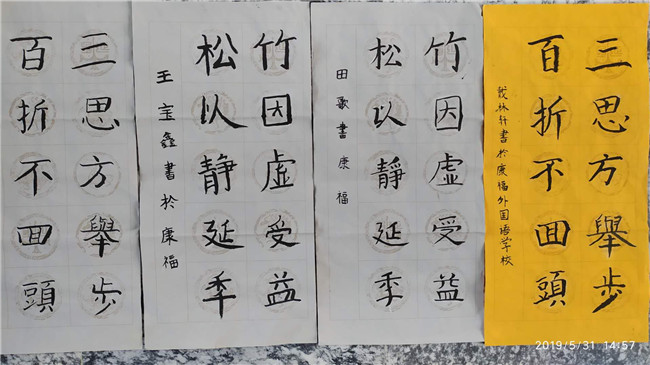 三思方舉步
百折不囬頭
竹因虚受益
松以静延年
王宝鑫書於康福
竹因虚受益
松以靜延年
田歌書康福
三思方舉步
百折不囬頭
林轩書於康福外国语学校
2019/5/31 14:57